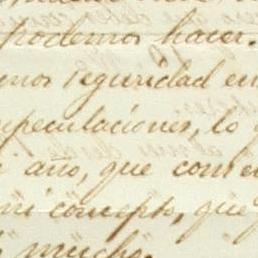 podemos hacer.
seguridad en
especulaciones, lo
año, que com
mi concepto, que
mucho.